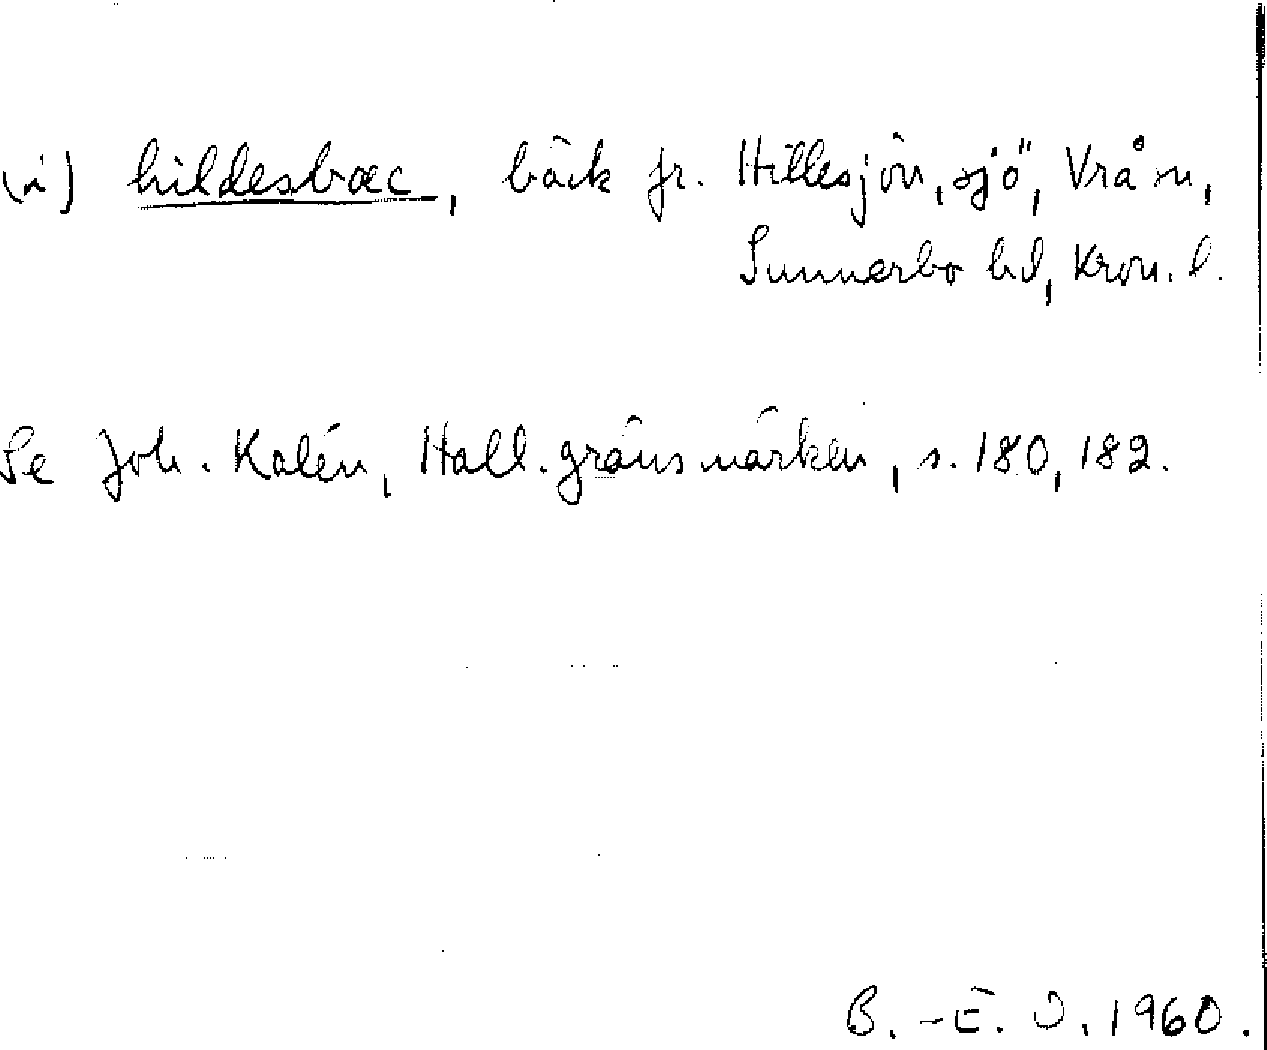 (i) hildesbæc, bäck fr. Hillesjön, sjö, Vrå sn,
Sunnerbo hd, Kron. l.
Se Joh. Kalén, Hall. gränsmärken, s. 180, 182.
B.-E. O. 1960.